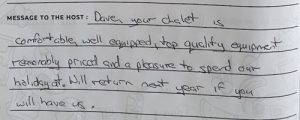 MESSAGE TO THE HOST: Dave, your chalet is
comfortable, well equipped, top quality equipment
reasonably priced and a pleasure to spend our
holiday at. Will return next year if you
will have us.